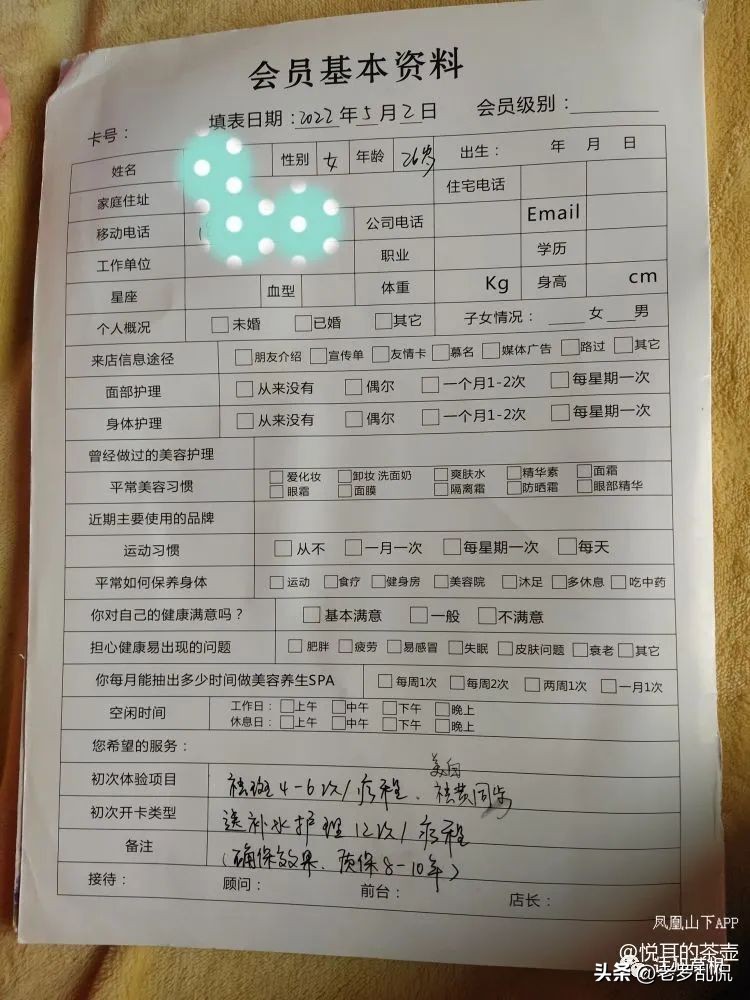 会员基本资料
卡号： 填表日期：2022年5月2日 会员级别：
姓名 性别 女 年龄 26岁 出生： 年 月 日
家庭住址 住宅电话
移动电话 公司电话 Email
工作单位 职业 学历
星座 血型 体重 Kg 身高 cm
个人概况 □未婚 □已婚 □其它 子女情况：____女____男
来店信息途径 □朋友介绍 □宣传单 □友情卡 □慕名 □媒体广告 □路过 □其它
面部护理 □从来没有 □偶尔 □一个月1-2次 □每星期一次
身体护理 □从来没有 □偶尔 □一个月1-2次 □每星期一次
曾经做过的美容护理
平常美容习惯 □爱化妆 □卸妆 洗面奶 □爽肤水 □精华素 □面霜
□眼霜 □面膜 □隔离霜 □防晒霜 □眼部精华
近期主要使用的品牌
运动习惯 □从不 □一月一次 □每星期一次 □每天
平常如何保养身体 □运动 □食疗 □健身房 □美容院 □沐足 □多休息 □吃中药
你对自己的健康满意吗？ □基本满意 □一般 □不满意
担心健康易出现的问题 □肥胖 □疲劳 □易感冒 □失眠 □皮肤问题 □衰老 □其它
你每月能抽出多少时间做美容养生SPA □每周1次 □每周2次 □两周1次 □一月1次
空闲时间 工作日：□上午 □中午 □下午 □晚上
休息日：□上午 □中午 □下午 □晚上
您希望的服务：
美白
初次体验项目 祛斑4-6次/疗程、祛黄同步
初次开卡类型 送补水护理12次/疗程
备注 （确保效果、质保8-10年）
接待： 顾问： 前台： 店长：
凤凰山下APP
@悦耳的茶壶
头条 @老罗乱侃